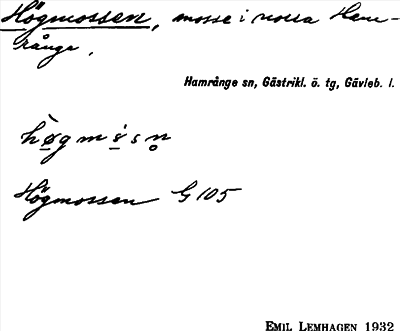 Högmossen, mosse i norra Ham-
rånge.
Hamrånge sn, Gästrikl. ö. tg, Gävleb. l.
Högmossen G 105
EMIL LEMHAGEN 1932